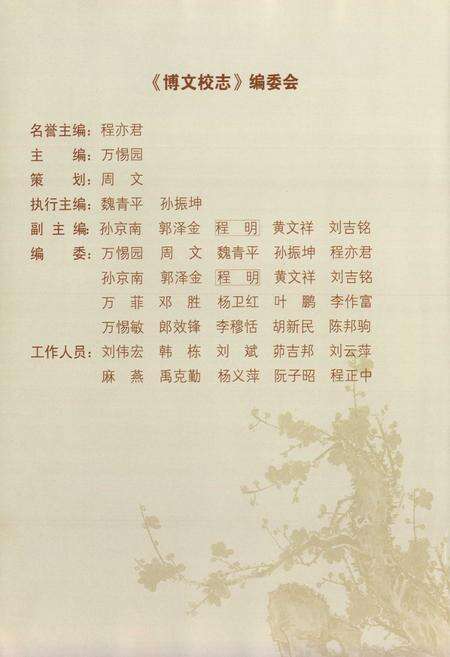 《博文校志》编委会
名誉主编：程亦君
主　　编：万惕园
策　　划：周　文
执行主编：魏青平　孙振坤
副 主 编：孙京南　郭泽金　程　明　黄文祥　刘吉铭
编　　委：万惕园　周　文　魏青平　孙振坤　程亦君
孙京南　郭泽金　程　明　黄文祥　刘吉铭
万　菲　邓　胜　杨卫红　叶　鹏　李作富
万惕敏　郎效锋　李穆恬　胡新民　陈邦驹
工作人员：刘伟宏　韩　栋　刘　斌　茆吉邦　刘云萍
麻　燕　禹克勤　杨义萍　阮子昭　程正中